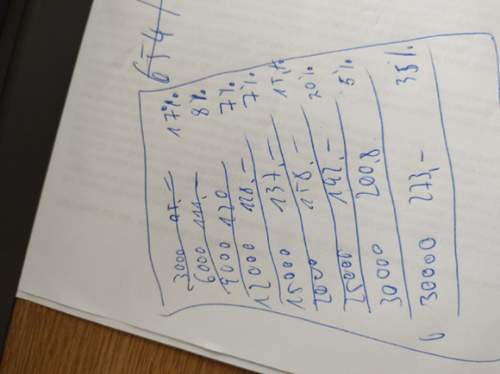 3000 95.– 17%
6000 111.– 8%
9000 120 7%
12000 128.– 7%
15000 137,– 15%
158.– 20%
25000 192.– 5%
30000 200.8
30000 273,– 35%